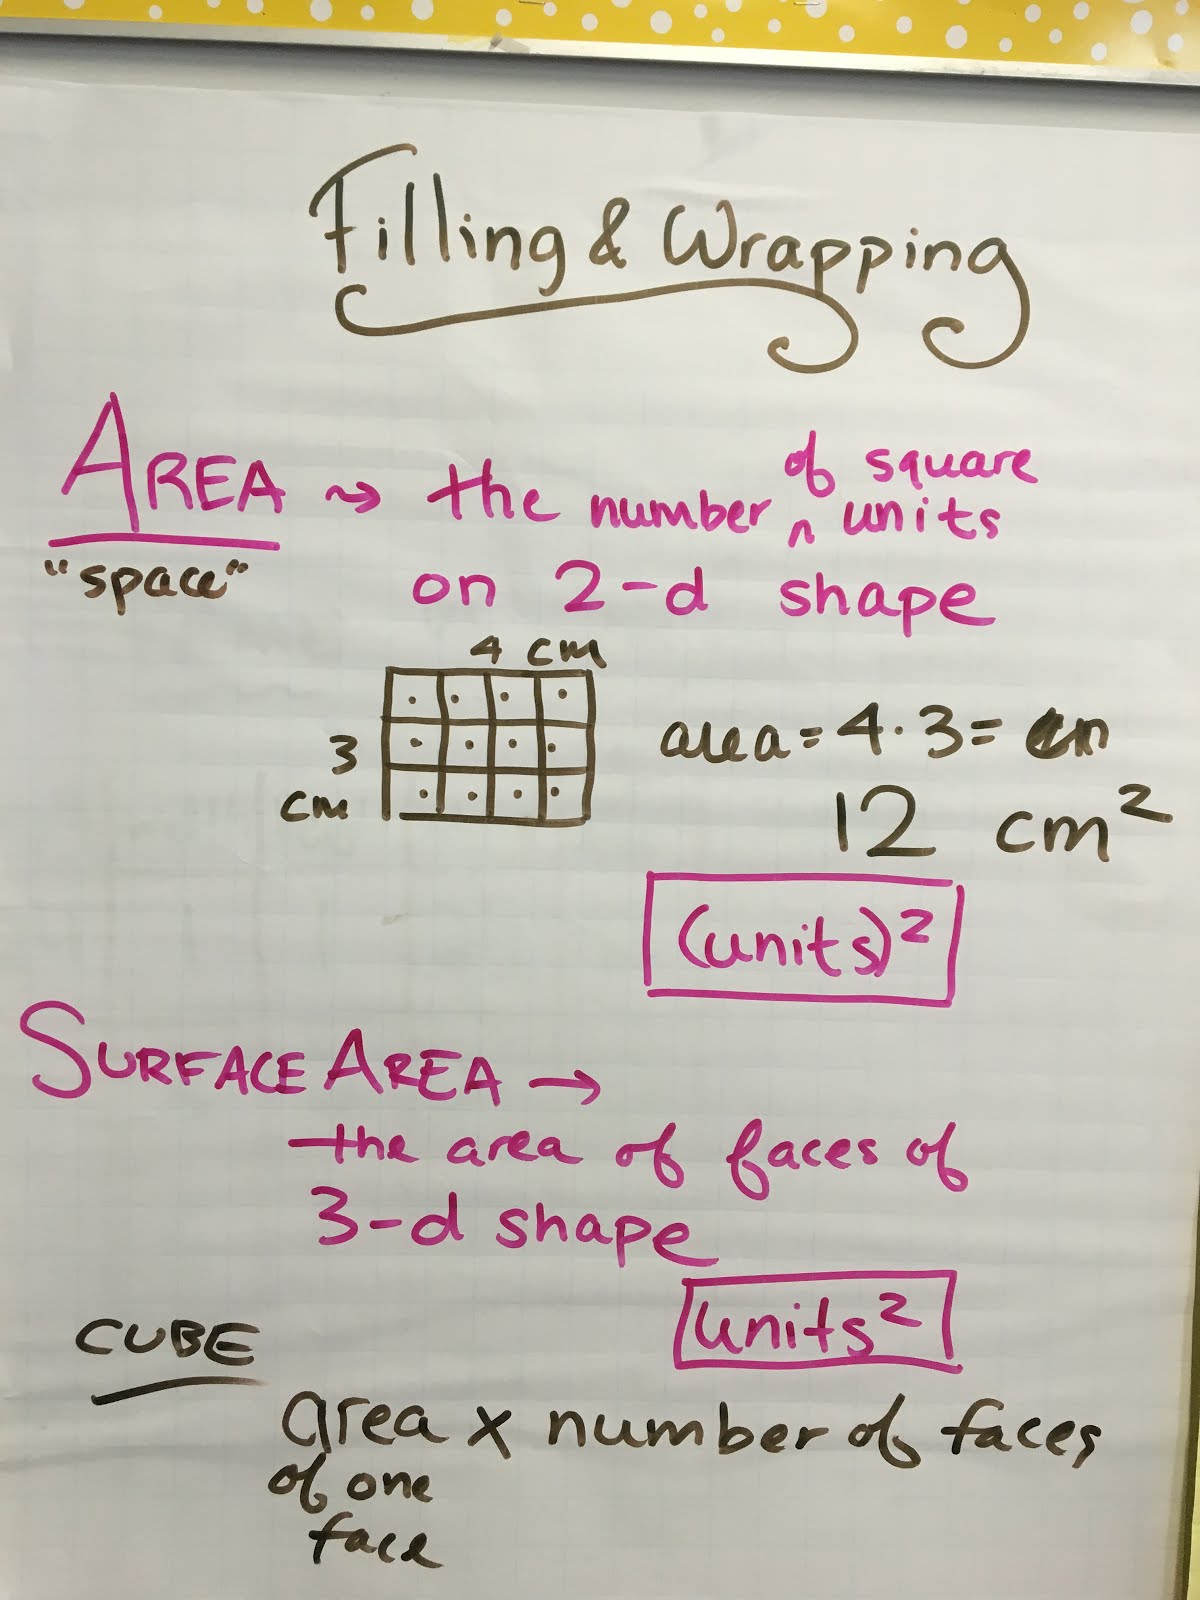 Filling & Wrapping
AREA → the number ^ of square units
"space"
on 2-d shape
4 cm
3
cm
area = 4 · 3 =
12 cm²
(units)²
SURFACE AREA →
the area of faces of
3-d shape
units²
CUBE
area x number of faces
of one
face